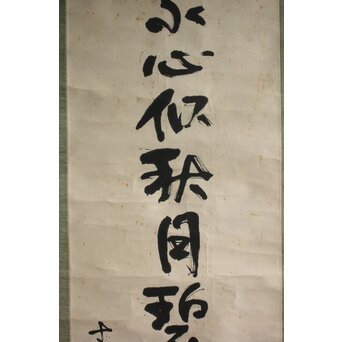 心似秋月碧